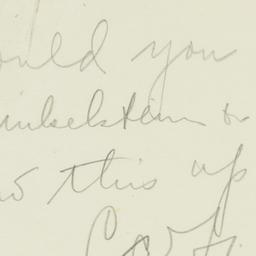 ould you
inkelstein or
this up